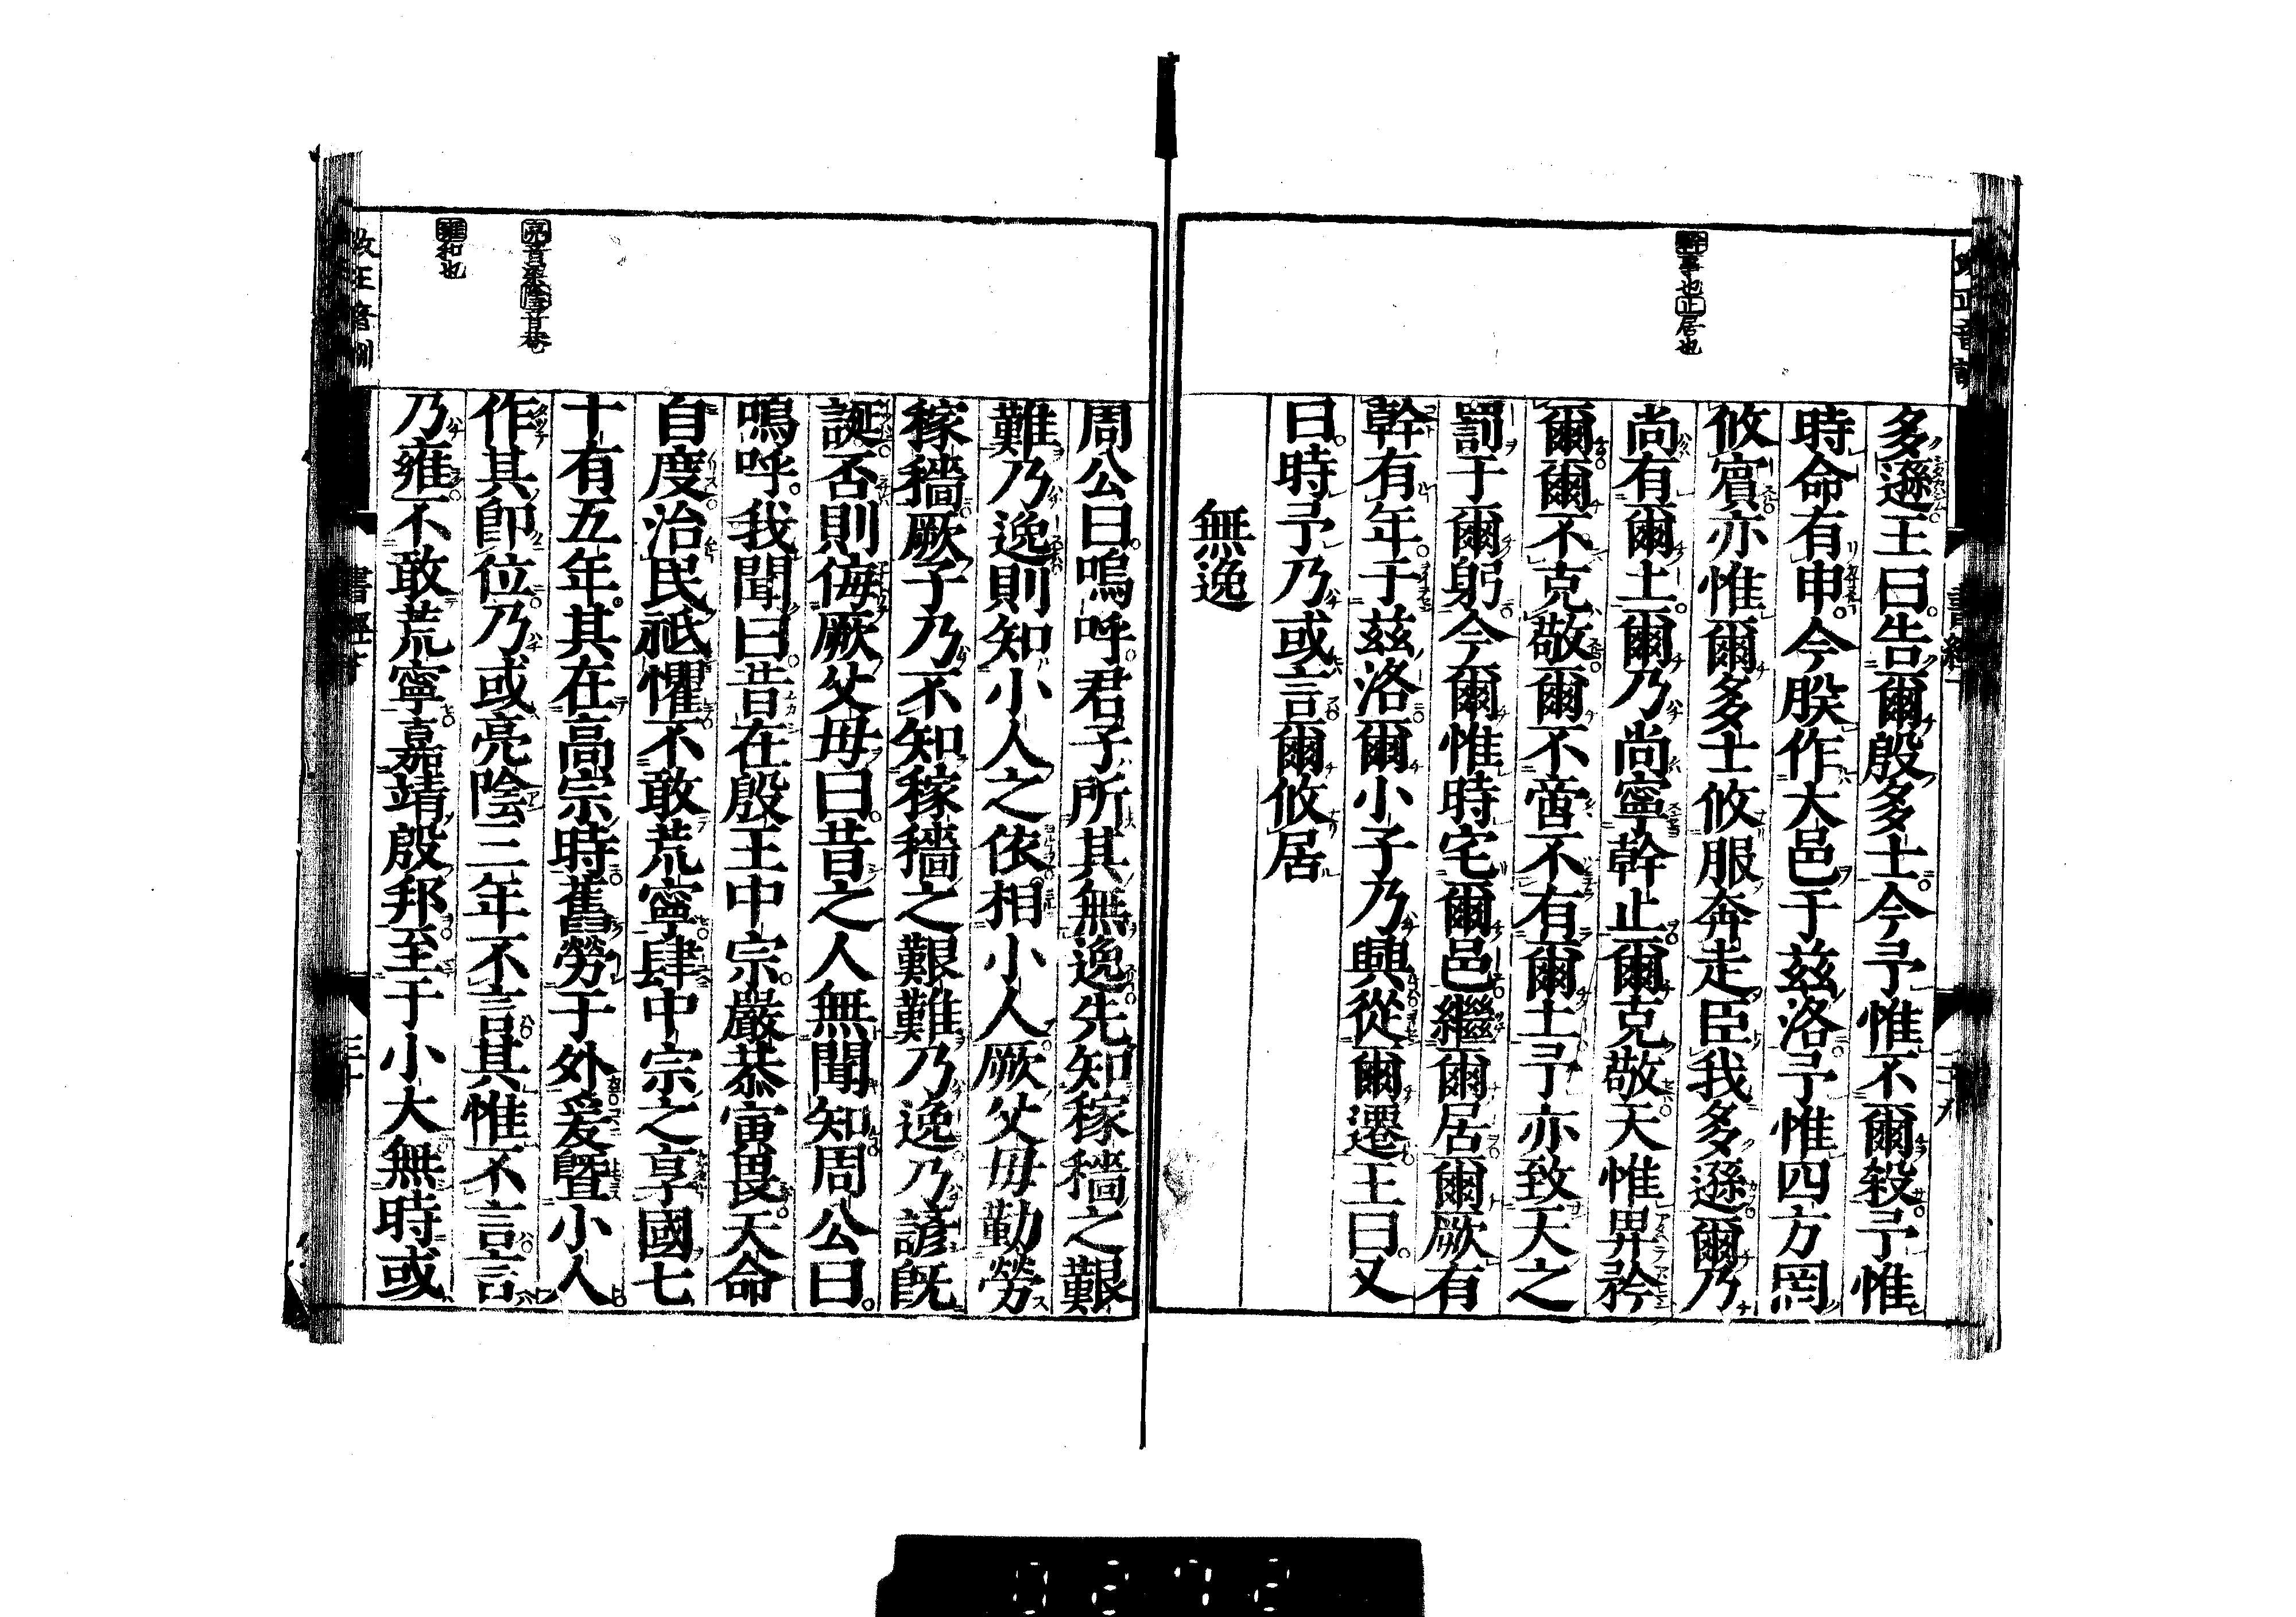 幹事也止居也
多遜王曰告爾殷多士今予惟不爾殺予惟
時命有申今朕作大邑于茲洛予惟四方罔
攸賓亦惟爾多士攸服奔走臣我多遜爾乃
尚有爾土爾乃尚寧幹止爾克敬天惟畀矜
爾爾不克敬爾不啻不有爾土予亦致天之
罰于爾躬今爾惟時宅爾邑繼爾居爾厥有
幹有年于茲洛爾小子乃興從爾遷王曰又
曰時予乃或言爾攸居
無逸
亮音梁陰音菴
雍和也
周公曰嗚呼君子所其無逸先知稼穡之艱
難乃逸則知小人之依相小人厥父母勤勞
稼穡厥子乃不知稼穡之艱難乃逸乃諺既
誕否則侮厥父母曰昔之人無聞知周公曰
嗚呼我聞曰昔在殷王中宗嚴恭寅畏天命
自度治民祗懼不敢荒寧肆中宗之享國七
十有五年其在高宗時舊勞于外爰曁小人
作其卽位乃或亮陰三年不言其惟不言言
乃雍不敢荒寧嘉靖殷邦至于小大無時或